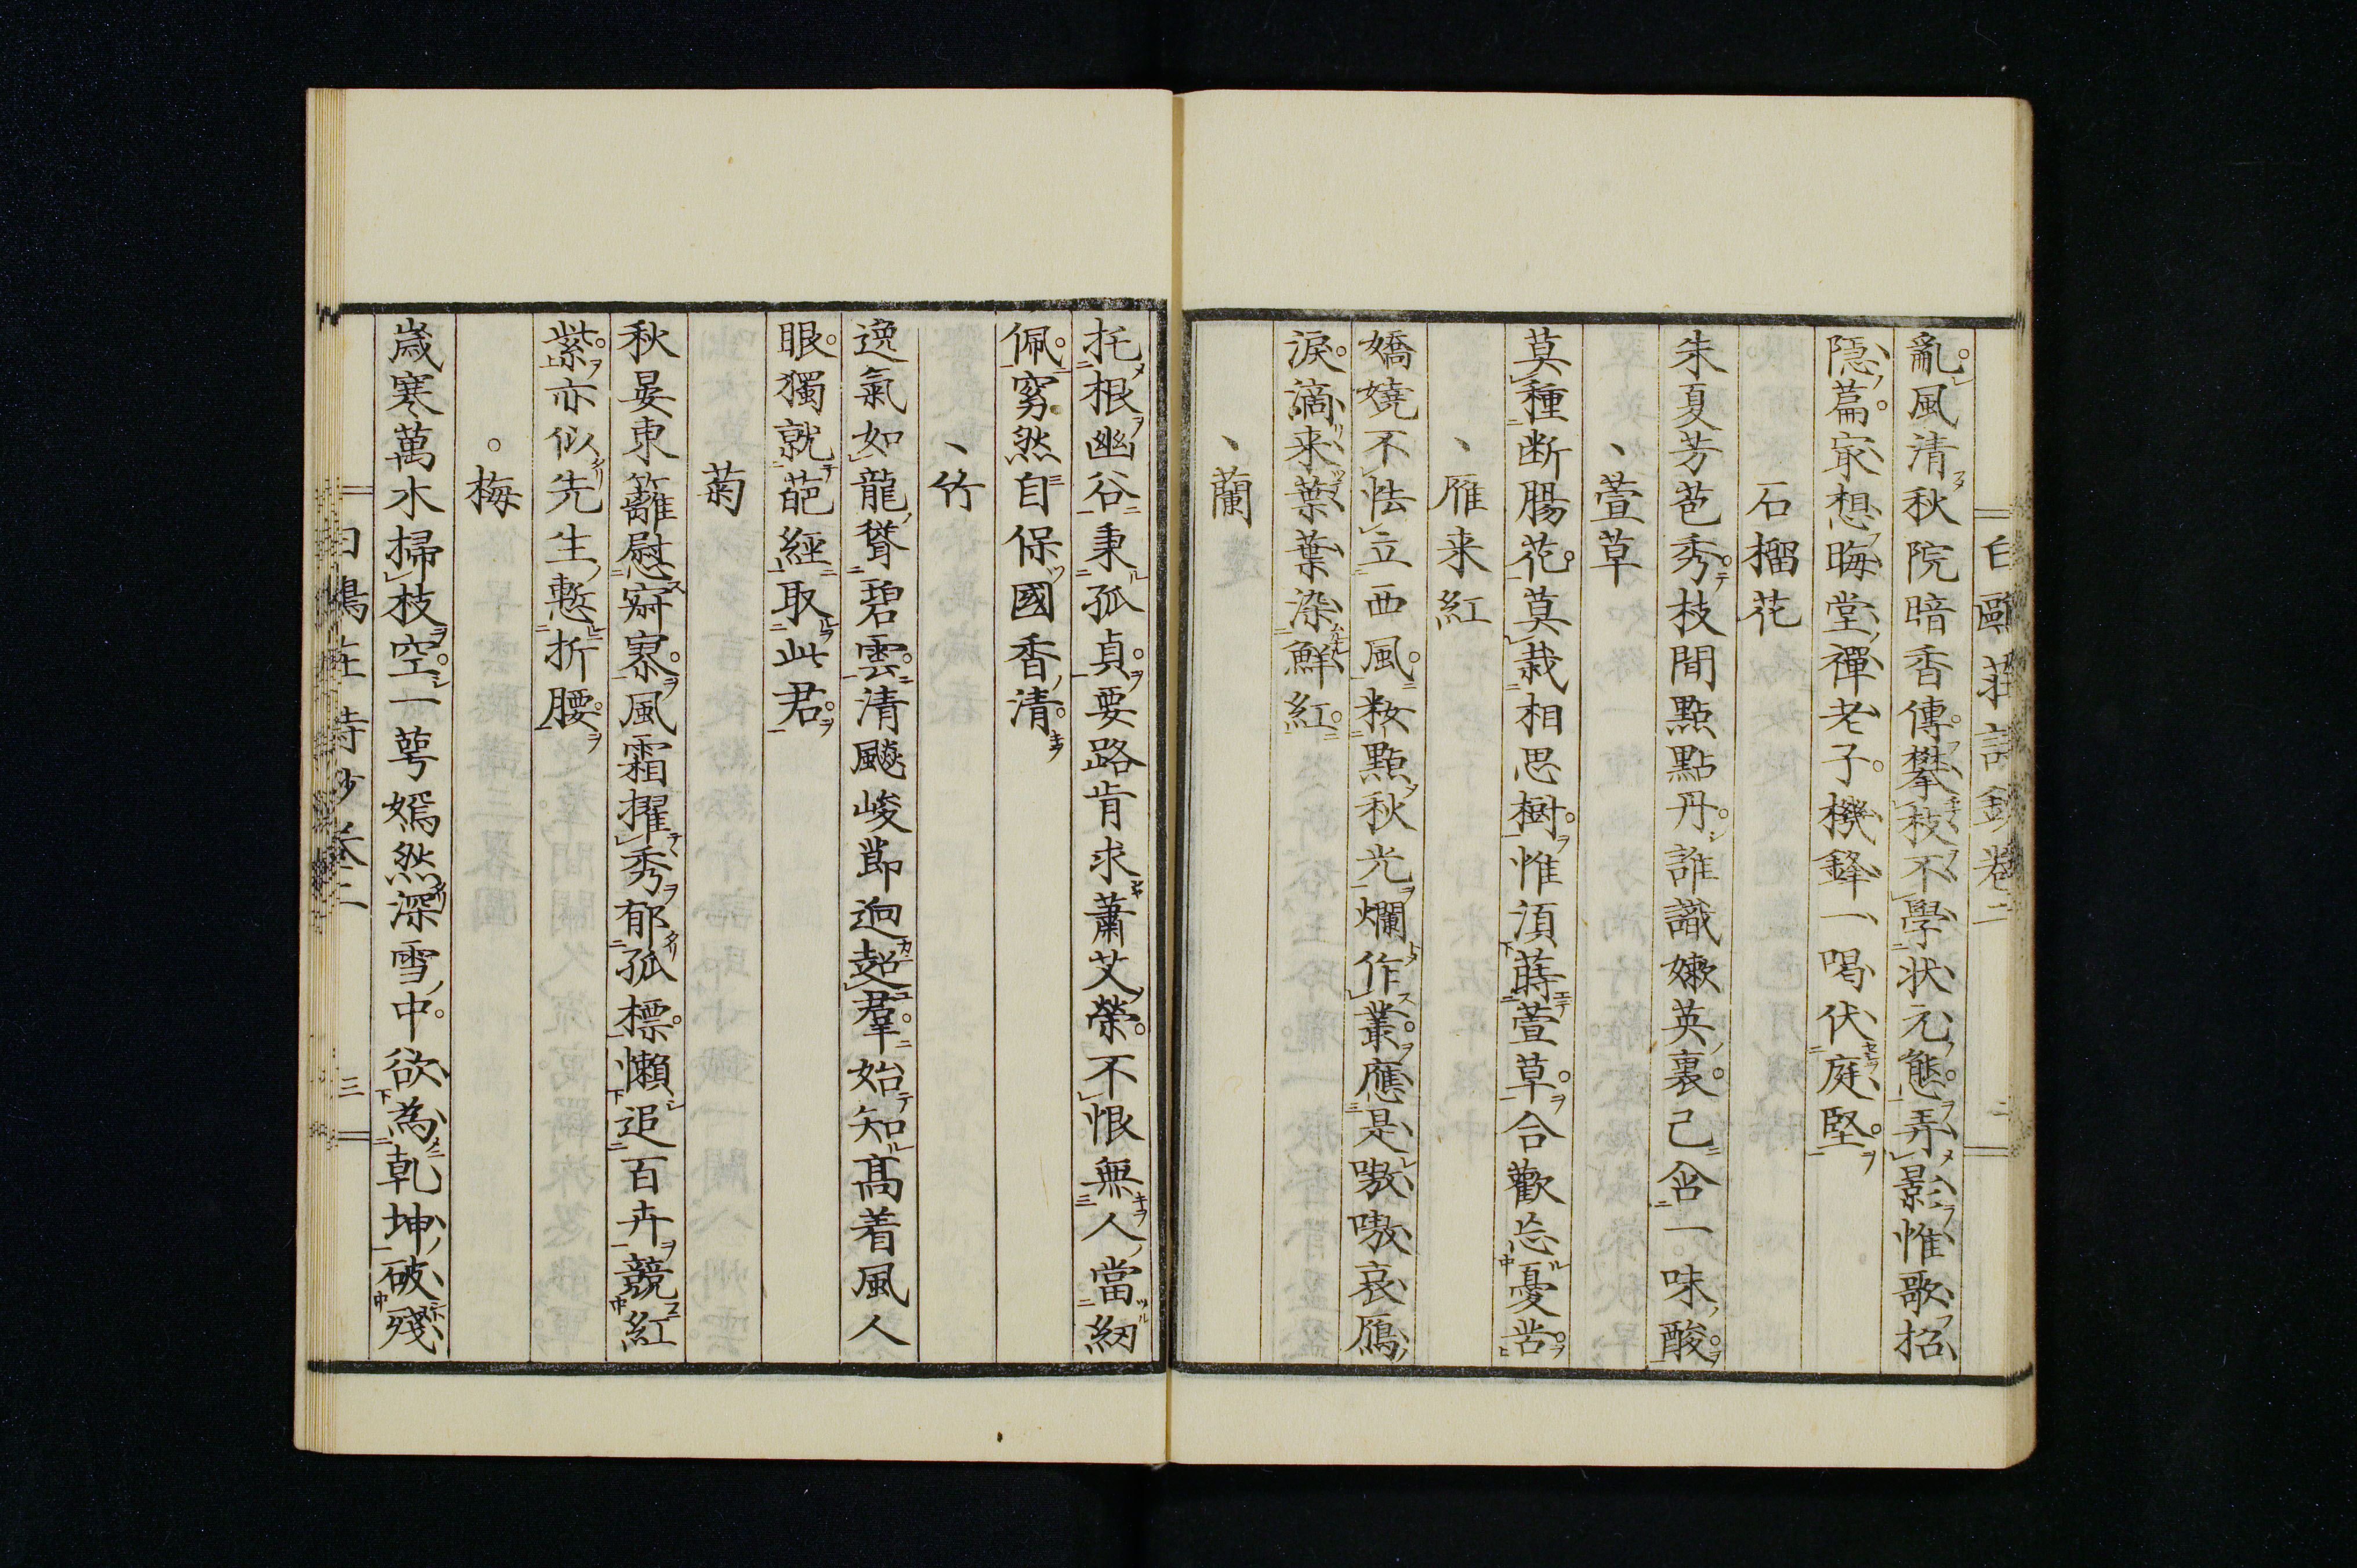 白鷗莊詩鈔卷二 二
亂風清秋院暗香傳攀枝不學状元態弄影惟歌招
隱篇家想晦堂禪老子機鋒一喝伏庭堅
石榴花
朱夏芳芭秀枝間點點丹誰識嫩英裏已含一味酸
萱草
莫種断腸花莫栽相思樹惟須蒔萱草合歡忘憂苦
雁来紅
嬌嬈不怯立西風粧點秋光爛作叢應是嗷嗷哀鴈
淚滴来葉葉染鮮紅
蘭
托根幽谷秉孤貞要路肯求蕭艾榮不恨無人當紉
佩窮然自保國香清
竹
逸氣如龍聳碧雲清飈峻節逈超羣始知高着風人
眼獨就葩經取此君
菊
秋晏東籬慰寂寥風霜擢秀郁孤標懶追百卉競紅
紫亦似先生慙折腰
梅
歲寒萬木掃枝空一萼嫣然深雪中欲為乾坤破殘
白鷗莊詩鈔卷二 三